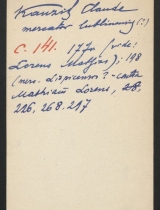 Kanzig Clause
mercator lublinensis (?)
C. 141. 177v (vide:
Lorens Mathias); 198
(merc. Lipsiensis? - contra
Mathiam Lorens, 28.
226, 268. 217